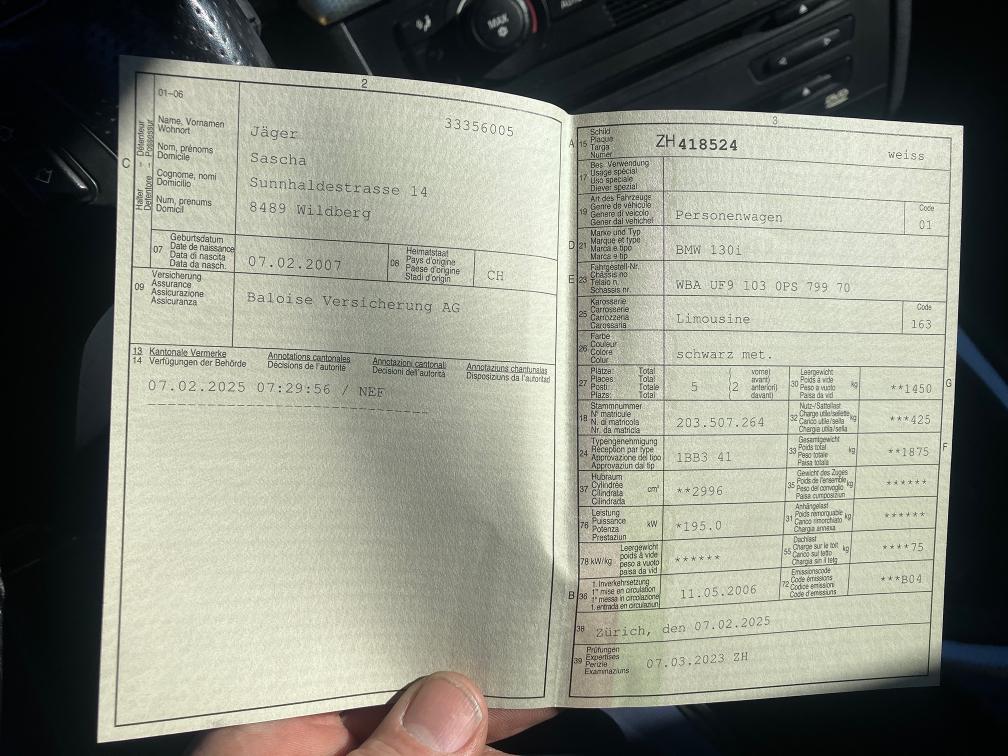 2
01–06
Name, Vornamen
Wohnort
Nom, prénoms
Domicile
Cognome, nomi
Domicilio
Num, prenums
Domicil
C
Halter - Détenteur
Detentore - Possessur
33356005
Jäger
Sascha
Sunnhaldestrasse 14
8489 Wildberg
07
Geburtsdatum
Date de naissance
Data di nascita
Data da nasch.
07.02.2007
08
Heimatstaat
Pays d'origine
Paese d'origine
Stadi d'origin
CH
09
Versicherung
Assurance
Assicurazione
Assicuranza
Baloise Versicherung AG
13
14
Kantonale Vermerke
Verfügungen der Behörde
Annotations cantonales
Décisions de l'autorité
Annotazioni cantonali
Decisioni dell'autorità
Annotaziuns chantunalas
Disposiziuns da l'autoritad
07.02.2025 07:29:56 / NEF
3
A 15
Schild
Plaque
Targa
Numer
ZH 418524
weiss
17
Bes. Verwendung
Usage spécial
Uso speciale
Diever spezial
19
Art des Fahrzeugs
Genre de véhicule
Genere di veicolo
Gener dal vehichel
Personenwagen
Code
01
D 21
Marke und Typ
Marque et type
Marca e tipo
Marca e tip
BMW 130i
E 23
Fahrgestell-Nr.
Châssis no
Telaio n.
Schassis nr.
WBA UF9 103 0PS 799 70
25
Karosserie
Carrosserie
Carrozzeria
Carossaria
Limousine
Code
163
26
Farbe
Couleur
Colore
Colur
schwarz met.
27
Plätze: Total
Places: Total
Posti: Totale
Plazs: Total
5
(2
vorne)
avant)
anteriori)
davant)
30
Leergewicht
Poids à vide
Peso a vuoto
Paisa da vid
kg
**1450
G
18
Stammnummer
N° matricule
N. di matricola
Nr. da matricla
203.507.264
32
Nutz-/Sattellast
Charge utile/sellette
Carico utile/sella
Chargia utila/sella
kg
***425
24
Typengenehmigung
Réception par type
Approvazione del tipo
Approvaziun dal tip
1BB3 41
33
Gesamtgewicht
Poids total
Peso totale
Paisa totala
kg
**1875
F
37
Hubraum
Cylindrée
Cilindrata
Cilindrada
cm³
**2996
35
Gewicht des Zuges
Poids de l'ensemble
Peso del convoglio
Paisa cumposiziun
kg
******
76
Leistung
Puissance
Potenza
Prestaziun
kW
*195.0
31
Anhängelast
Poids remorquable
Carico rimorchiato
Chargia annexa
kg
******
78 kW/kg
Leergewicht
poids à vide
peso a vuoto
paisa da vid
******
55
Dachlast
Charge sur le toit
Carico sul tetto
Chargia sin il tetg
kg
****75
B 36
1. Inverkehrsetzung
1re mise en circulation
1a messa in circolazione
1. entrada en circulaziun
11.05.2006
72
Emissionscode
Code émissions
Codice emissioni
Code d'emissiuns
***B04
38
Zürich, den 07.02.2025
39
Prüfungen
Expertises
Perizie
Examinaziuns
07.03.2023 ZH
MAX